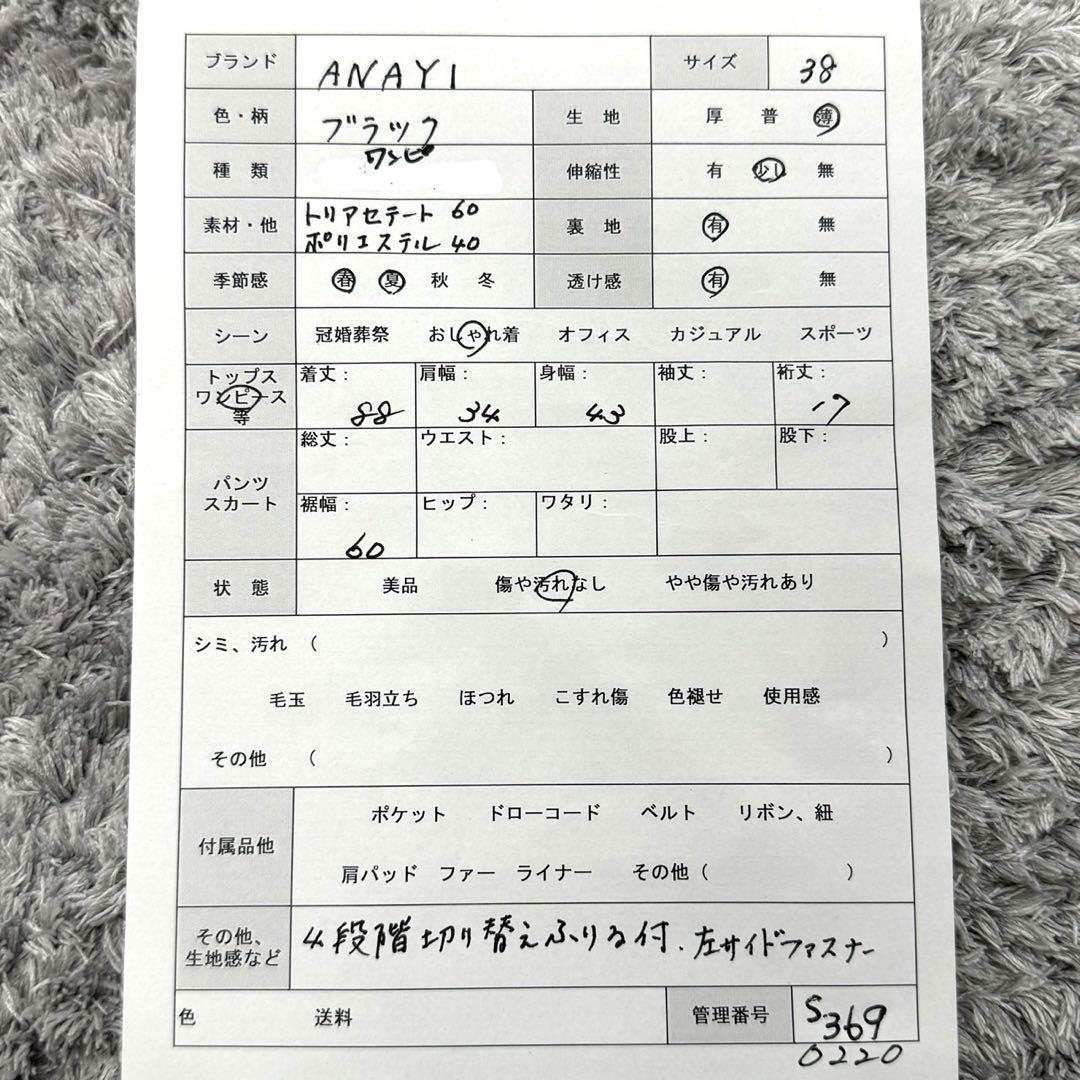 ブランド ANAYI サイズ 38
色・柄 ブラック 生 地 厚 普 薄
種 類 ワンピ 伸縮性 有 少し 無
素材・他 トリアセテート 60 裏 地 有 無
ポリエステル 40
季節感 春 夏 秋 冬 透け感 有 無
シーン 冠婚葬祭 おしゃれ着 オフィス カジュアル スポーツ
トップス 着丈： 肩幅： 身幅： 袖丈： 裄丈：
ワンピース
等 88 34 43 17
総丈： ウエスト： 股上： 股下：
パンツ
スカート 裾幅： ヒップ： ワタリ：
60
状 態 美品 傷や汚れなし やや傷や汚れあり
シミ、汚れ （ ）
毛玉 毛羽立ち ほつれ こすれ傷 色褪せ 使用感
その他 （ ）
ポケット ドローコード ベルト リボン、紐
付属品他
肩パッド ファー ライナー その他（ ）
その他、 4段階切り替えふりる付、左サイドファスナー
生地感など
色 送料 管理番号 S369
0220